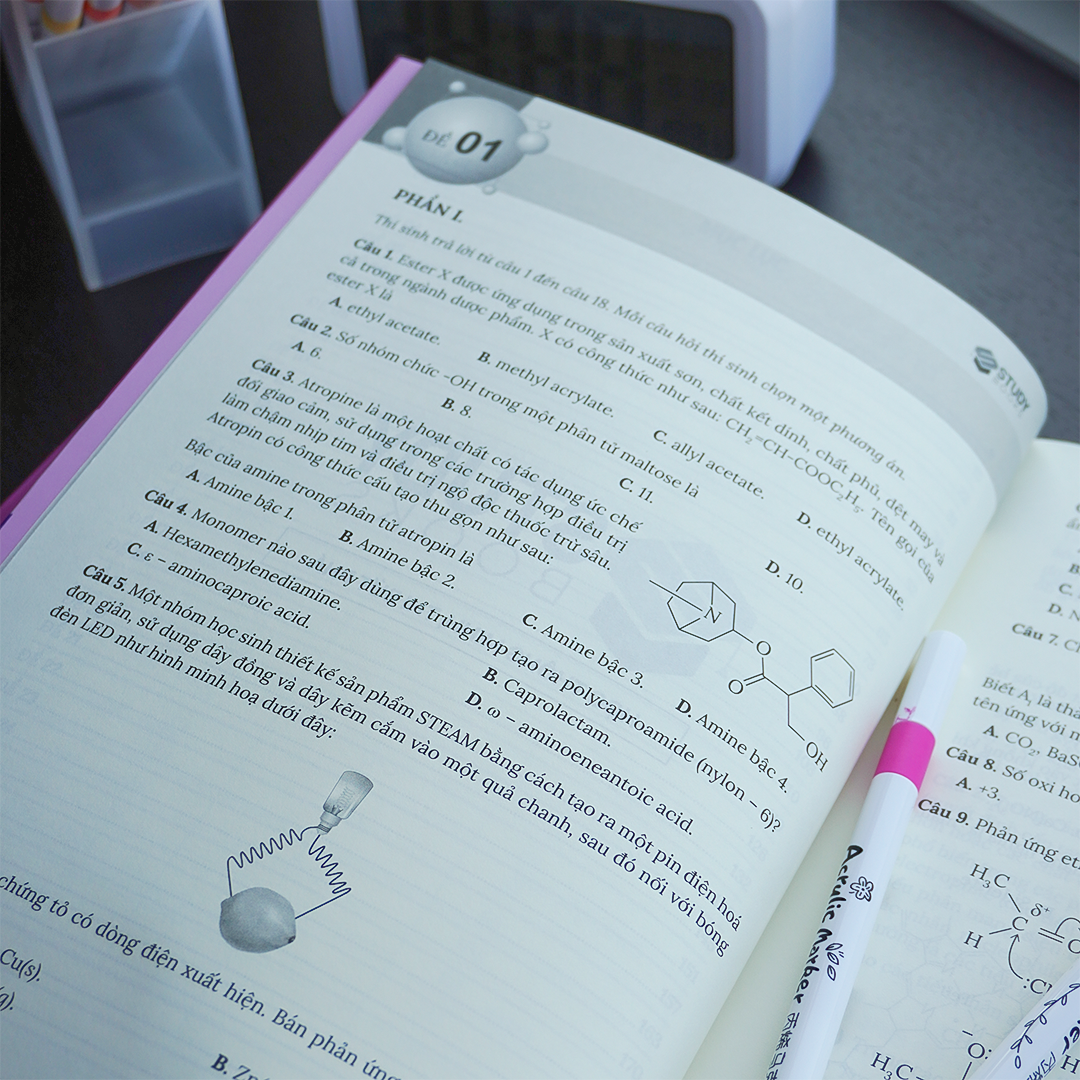 ĐỀ 01
PHẦN I.
Thí sinh trả lời từ câu 1 đến câu 18. Mỗi câu hỏi thí sinh chọn một phương án.
Câu 1. Ester X được ứng dụng trong sản xuất sơn, chất kết dính, chất phủ, dệt may và
cả trong ngành dược phẩm. X có công thức như sau: CH₂=CH-COOC₂H₅. Tên gọi của
ester X là
A. ethyl acetate. B. methyl acrylate. C. allyl acetate. D. ethyl acrylate.
Câu 2. Số nhóm chức –OH trong một phân tử maltose là
A. 6. B. 8. C. 11. D. 10.
Câu 3. Atropine là một hoạt chất có tác dụng ức chế
đối giao cảm, sử dụng trong các trường hợp điều trị
làm chậm nhịp tim và điều trị ngộ độc thuốc trừ sâu.
Atropin có công thức cấu tạo thu gọn như sau:
N
O
O
OH
Bậc của amine trong phân tử atropin là
A. Amine bậc 1. B. Amine bậc 2. C. Amine bậc 3. D. Amine bậc 4.
Câu 4. Monomer nào sau đây dùng để trùng hợp tạo ra polycaproamide (nylon – 6)?
A. Hexamethylenediamine. B. Caprolactam.
C. ε – aminocaproic acid. D. ω – aminoeneantoic acid.
Câu 5. Một nhóm học sinh thiết kế sản phẩm STEAM bằng cách tạo ra một pin điện hoá
đơn giản, sử dụng dây đồng và dây kẽm cắm vào một quả chanh, sau đó nối với bóng
đèn LED như hình minh hoạ dưới đây:
chứng tỏ có dòng điện xuất hiện. Bán phản ứng
Cu(s).
B.
STUDY
Câu 7.
Biết A₁ là
tên ứng với
A. CO₂,
Câu 8. Số oxi
A. +3.
Câu 9. Phản ứng
H₃C
δ⁺
C
H
H₃C
O:
Acrylic marker